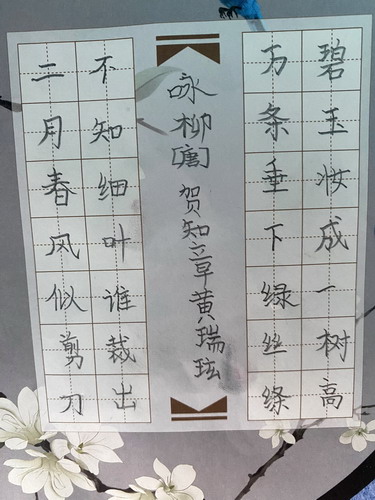 碧玉妆成一树高
万条垂下绿丝绦
咏柳[唐]贺知章黄瑞玹
不知细叶谁裁出
二月春风似剪刀